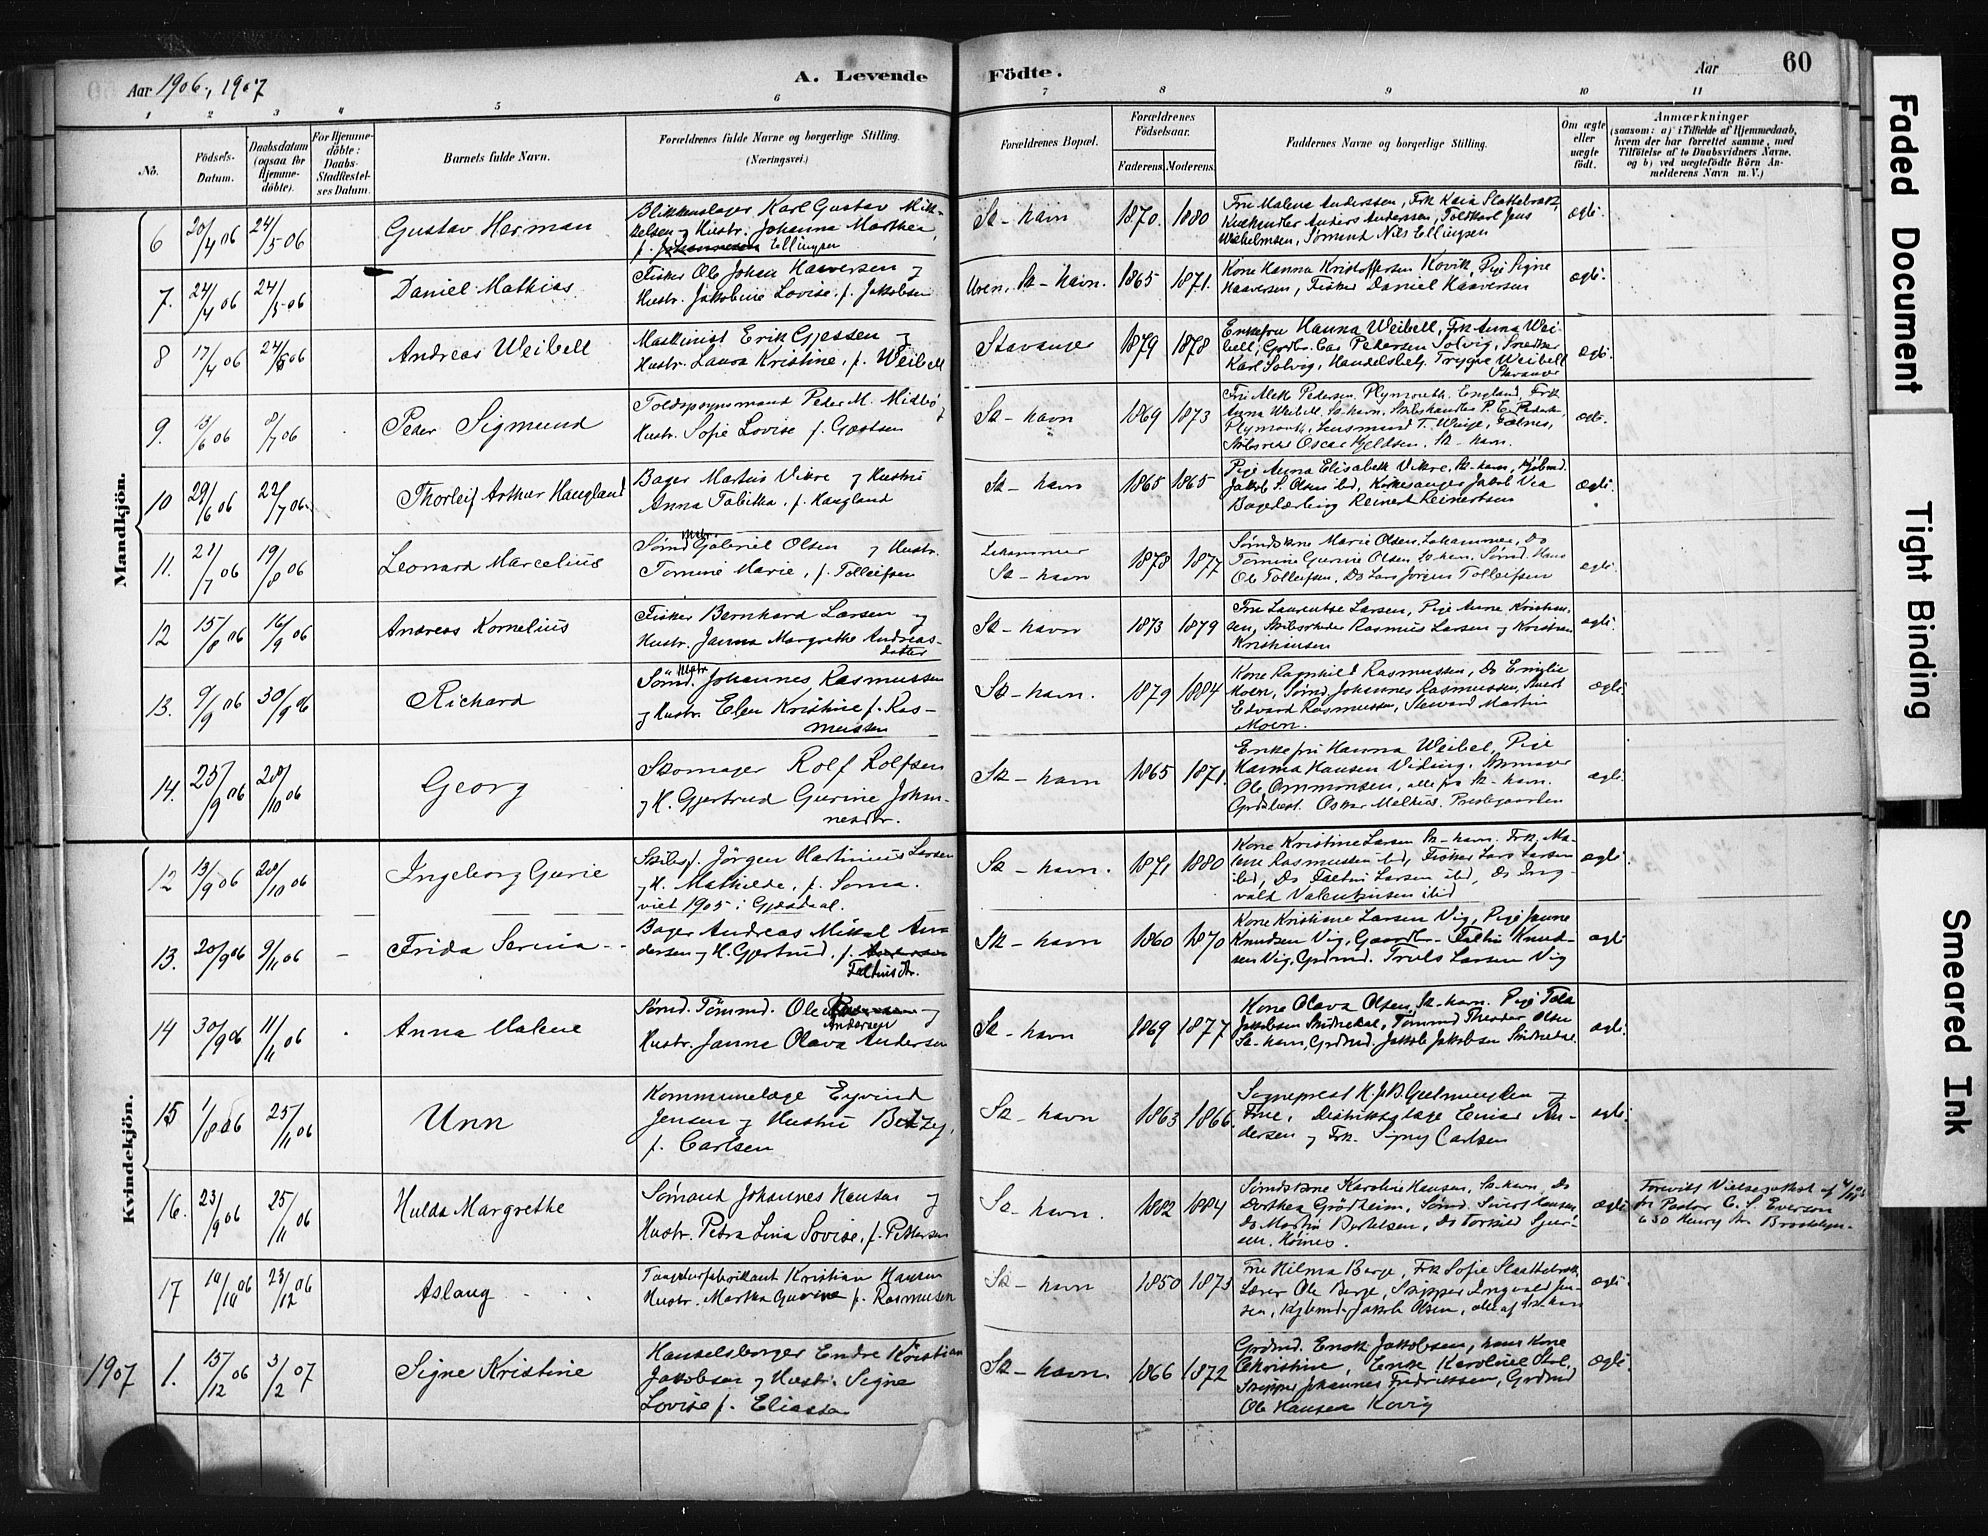 Aar 1906, 1907
A. Levende
Födte.
Aar
60
1 2 3 4 5 6 7 8 9 10 11
No.
Födsels-Datum.
Daabsdatum (ogsaa for Hjemme-döbte).
For Hjemme-döbte: Daabs-Stadfæstel-ses Datum.
Barnets fulde Navn.
Forældrenes fulde Navne og borgerlige Stilling. (Næringsvei.)
Forældrenes Bopæl.
Forældrenes Födselsaar.
Faderens Moderens
Faddernes Navne og borgerlige Stilling.
Om ægte eller uægte födt.
Anmærkninger
(saasom: a) i Tilfælde af Hjemmedaab, hvem der har forrettet samme, med Tilföielse af to Daabsvidners Navne, og b) ved uægtefödte Börn An-melderens Navn m. V.)
Mandkjön.
6 20/4 06 24/5 06 Gustav Herman
Blikkenslager Karl Gustav Mik-
kelsen og Hustr. Johanna Marthea,
f. Ellingsen
Sk-havn 1870. 1880
Fru Malena Anderssen, Frk Kaia
Anders Anderssen, Toldkarl Jens
Wilhelmsen, Sömand Nils Ellingsen
ægte.
7. 24/4 06 24/5 06 Daniel Mathias
Fisker Ole Johan Haaversen og
Hustr. Jakobine Lovise, f. Jakobsen
Sk-havn. 1865 1871.
Kone Hanna Kristoffersen Kovik, Pige Signe
Haaversen, Fisker Daniel Haaversen
ægte.
8 17/4 06 24/6 06 Andreas Weibell
Maskinist Erik Gjessen og
Hustr. Laura Kristine, f. Weibell
Stavanger 1879 1878
Enkefru Hanna Weibell, Frk Anna Wei-
bell, Pedersen Solvig, Snedker
Karl Solvig, Handelsbetj. Trygve Weibell
Stavanger
ægte.
9. 13/6 06 8/7 06 Peder Sigmund
Toldopsynsmand Peder M. Midbö og
Hustr. Sofie Lovise f. Gjestsen
Sk-havn 1869 1873
Pedersen, Plymouth, England, Frk
Anna Weibell, Sk-havn, Skibshandler P. E. Peder-
Plymouth, Lensmand T. Falnes,
Skibsreder Oscar Kjeldsen, Sk-havn.
ægte.
10 29/6 06 22/7 06. Thorleif Arthur Haugland
Bager Martin Vikre og Hustru
Anna Tabitha, f. Haugland
Sk-havn 1865 1865
Pige Anna Elisabeth Vikre, Sk-havn, Kjöbmd.
Jakob S. Olsen ibd, Kirkesanger Jakob Vea
Bagerlærling Reinert Reinertsen
ægte.
11. 21/7 06 19/8 06 Leonard Marcelius
Sömd. Gabriel Olsen og Hustr.
Tomine Marie, f. Tolleifsen
Sk-havn 1878 1877
Sömdskone Marie Olsen, Do
Tomine Gurine Olsen, Sk-havn, Sömd. Hans
Ole Tolleifsen, Do Lars Jörgen Tolleifsen
ægte.
12 15/8 06 16/9 06 Andreas Kornelius
Fisker Bernhard Larsen og
Hustr. Janna Margrethe Andreas-
datter
Sk-havn 1873 1879
Fru Laurentse Larsen, Pige Anne Kristian-
sen, Skibsreder Rasmus Larsen og Kristian
Kristiansen
ægte.
13. 9/9 06 30/9 06 Richard
Sömd. Johannes Rasmussen
og Hustr. Elen Kristine f. Ras-
mussen
Sk-havn. 1879 1884
Kone Ragnhild Rasmussen, Do Emilie
Moen, Sömd. Johannes Rasmussen,
Edvard Rasmussen, Steward Martin
Moen.
ægte
14. 25/9 06 28/10 06 Georg
Skomager Rolf Rolfsen
og H. Gjertrud Gurine Johan-
nesdtr.
Sk-havn 1865 1871.
Enkefru Hanna Weibel, Pige
Hanna Hansen Viding, Skomager
Ole Ommonsen, alle fra Sk-havn.
Oskar Melhus. Prestegaarden
ægte.
Kvindekjön.
12 13/9 06 28/10 06 Ingeborg Gurie
Skibsf. Jörgen Martinius Larsen
og H. Mathilde, f. Soma.
viet 1905 i Gjesdaal.
Sk-havn. 1871 1880
Kone Kristine Larsen Sk-havn. Frk. Ma-
lene Rasmussen ibd, Fisker Lars Larsen
ibd, Do Faltin Larsen ibd, Do Ing-
vald Valentinsen ibid
ægte.
13. 20/9 06 9/11 06 Frida Serina
Bager Andreas Mikal An-
dersen og H. Gjertrud, f. Andersen
Feltinsdtr.
Sk-havn 1860 1870
Kone Kristiane Larsen Vig, Pige Janne
Knudsen Vig, Gaardbr. Faltin Knud-
sen Vig, Grdmd. Truls Larsen Vig
ægte
14 30/9 06 11/11 06 Anna Malene
Sömd. Tömmd. Ole og
Andersen
Hustr. Janna Olava Andersen
Sk-havn 1869 1877
Kone Olava Olsen, Sk-havn. Pige
Jakobsen Tömmd Theodor Olsen
Sk-havn, Grdmd. Jakob Jakobsen
ægte.
15 1/8 06 25/11 06 Unn
Kommunelæge Eyvind
Jensen og Hustru Betzy,
f. Carlsen
Sk-havn 1863 1866.
Sogneprest og
Frue, Distriktslæge Einar An-
dersen og Frk. Signy Carlsen
ægte.
16. 23/9 06 25/11 06 Hulda Margrethe
Sömand Johannes Hansen og
Hustr. Petra Lina Lovise, f. Pettersen
Sk-havn. 1882 1884
Sömdskone Karoline Hansen, Sk-havn, Do
Dorthea Grödheim, Sömd. Sivert Hansen,
Do Martin Bertelsen, Do Torkild Sjur-
sen, Höines.
ægte
Forevist Vielsesattest af
fr Pastor C. S. Everson
630 Henry Str. Brooklyn.
17 14/10 06 23/12 06 Aslaug
Kristian Hansen
Hustr. Martha Gurine f. Rasmussen
Sk-havn 1850 1873
Fru Hilma Berge, Frk Sofie
Lærer Ole Berge, Skipper Ingvald Jen-
sen, Kjbmd Jakob Olsen, alle af Sk-havn
ægte.
1907 1. 15/12 06 3/2 07 Signe Kristine
Handelsborger Endre Kristian
Jakobsen og Hustr. Signe
Lovise f. Eliassen
Sk-havn 1866 1872
Grdmd. Enok Jakobsen, hans Kone
Christine, Enke Karoline
Skipper Johannes Fredrikssen, Grdmd
Ole Hansen Kovig
ægte.
Faded Document
Tight Binding
Smeared Ink